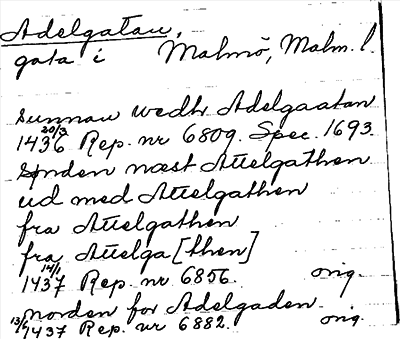 Adelgatan,
gata i Malmö, Malm. l.
sunnan wedh Adelgaatan
20/3 1436 Rep. nr 6809. Spec. 1693.
synden næst Attelgathen
ud med Attelgathen
fra Attelgathen
fra Attelga[then]
14/1 1437 Rep. nr 6856. orig.
norden for Adelgaden.
1437 Rep. nr 6882. orig.